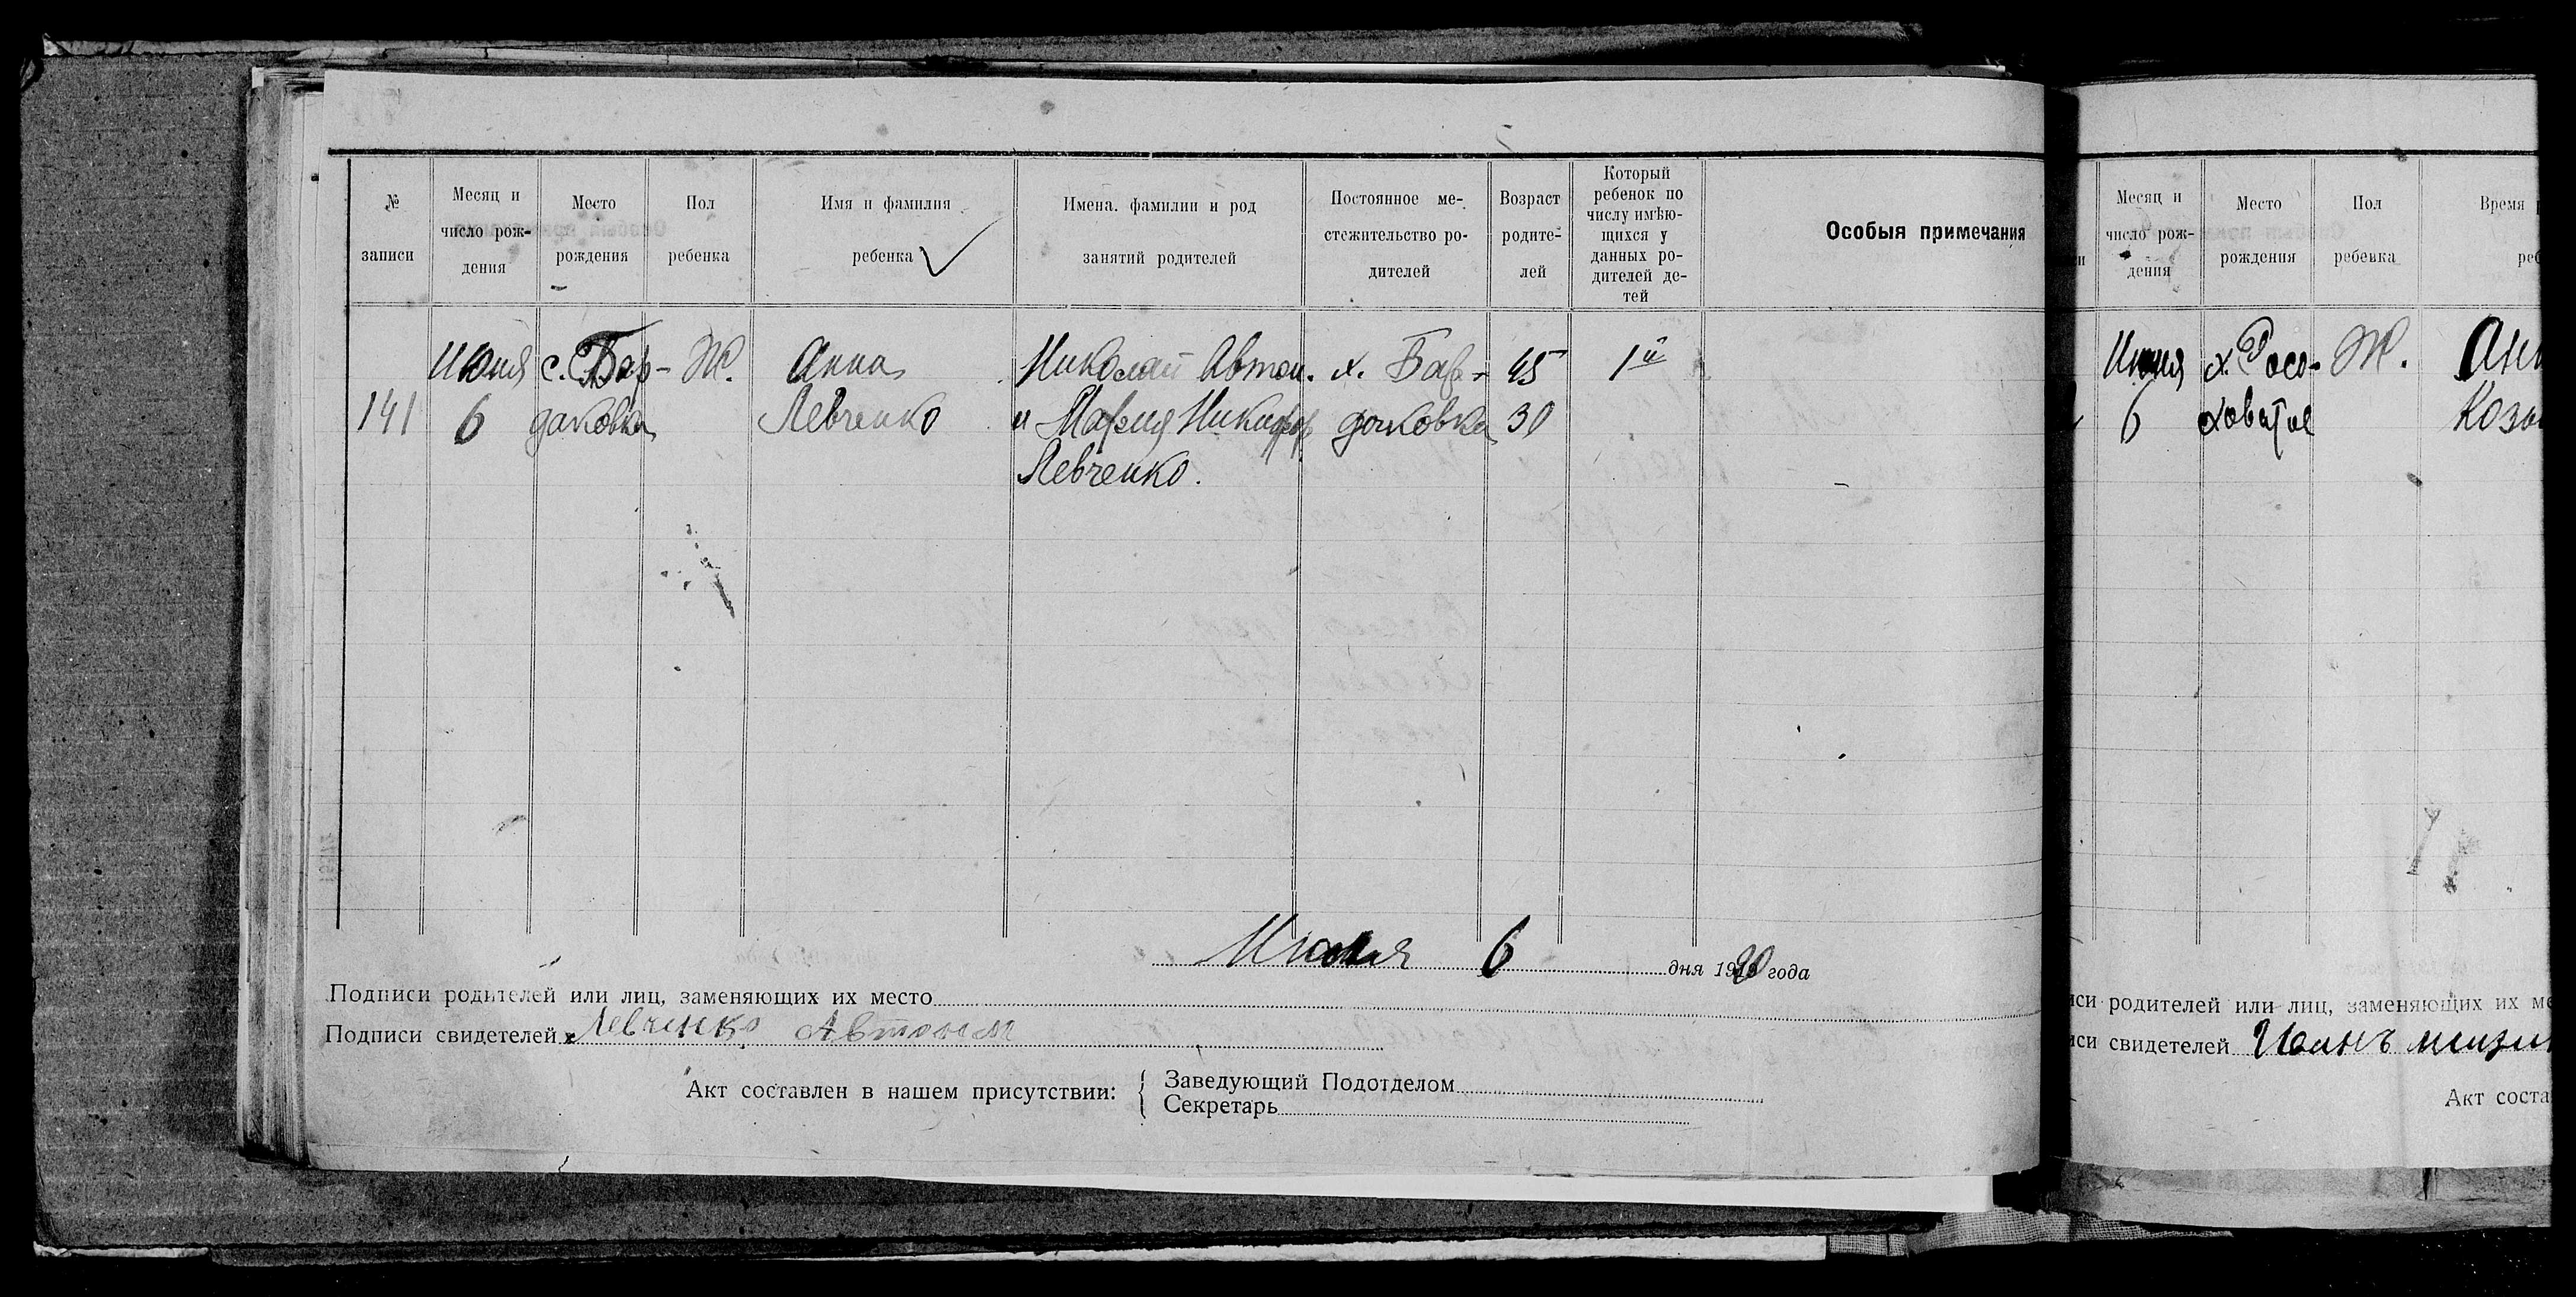 № записи
Месяц и число рождения
Место рождения
Пол ребенка
Имя и фамилия ребенка
Имена. фамилии и род занятий родителей
Постоянное местожительство родителей
Возраст родителей
Который ребенок по числу имѣющихся у данных родителей детей
Особыя примечания
141
Июня
6
с. Бар-
даковка
Ж.
Анна
Левченко
Николай Автон.
и Мария Никифор
Левченко.
х. Бар-
даковка
45
30
1й
Июня 6 дня 1920 года
Подписи родителей или лиц, заменяющих их место
Подписи свидетелей Левченко Автоном
Акт составлен в нашем присутствии:
Заведующий Подотделом
Секретарь
Месяц и число рождения
Место рождения
Пол ребенка
Время
Июня
6
х. Росо-
ховатое
Ж.
родителей или лиц, заменяющих их
свидетелей
Акт